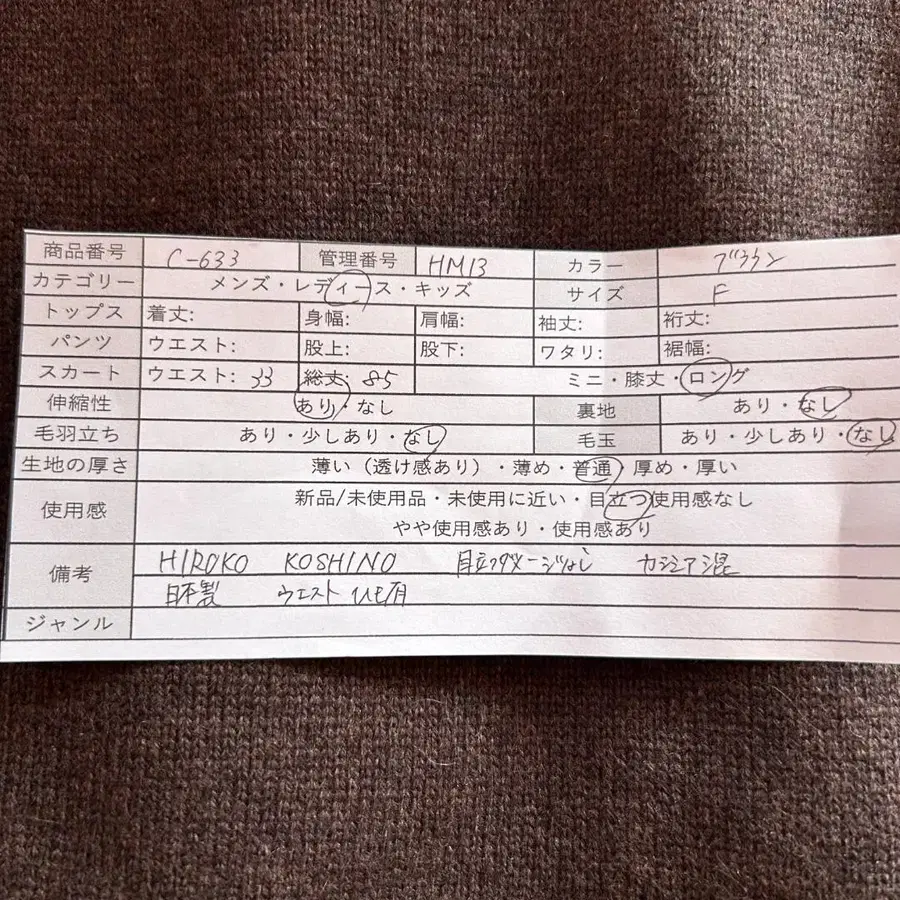 商品番号 C-633 管理番号 HM13 カラー ブラウン
カテゴリー メンズ・レディース・キッズ サイズ F
トップス 着丈: 身幅: 肩幅: 袖丈: 裄丈:
パンツ ウエスト: 股上: 股下: ワタリ: 裾幅:
スカート ウエスト: 33 総丈: 85 ミニ・膝丈・ロング
伸縮性 あり・なし 裏地 あり・なし
毛羽立ち あり・少しあり・なし 毛玉 あり・少しあり・なし
生地の厚さ 薄い（透け感あり）・薄め・普通・厚め・厚い
使用感 新品/未使用品・未使用に近い・目立つ使用感なし
やや使用感あり・使用感あり
備考 HIROKO KOSHINO 目立つダメージなし カシミア混
日本製 ウエスト
ジャンル